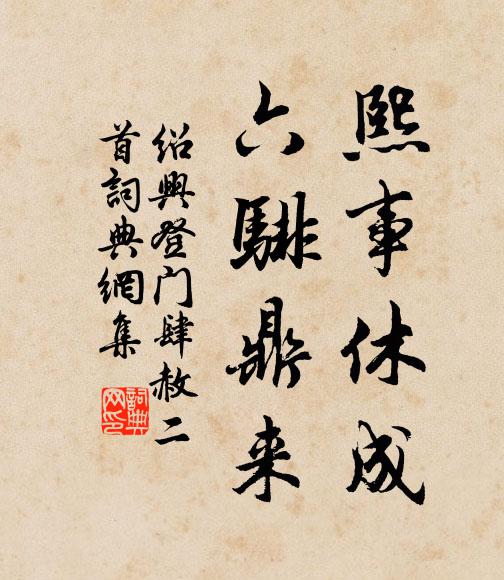 熙事休成
六騑鼎来
绍興登门肆赦二
首詞典網集
詞典
网印